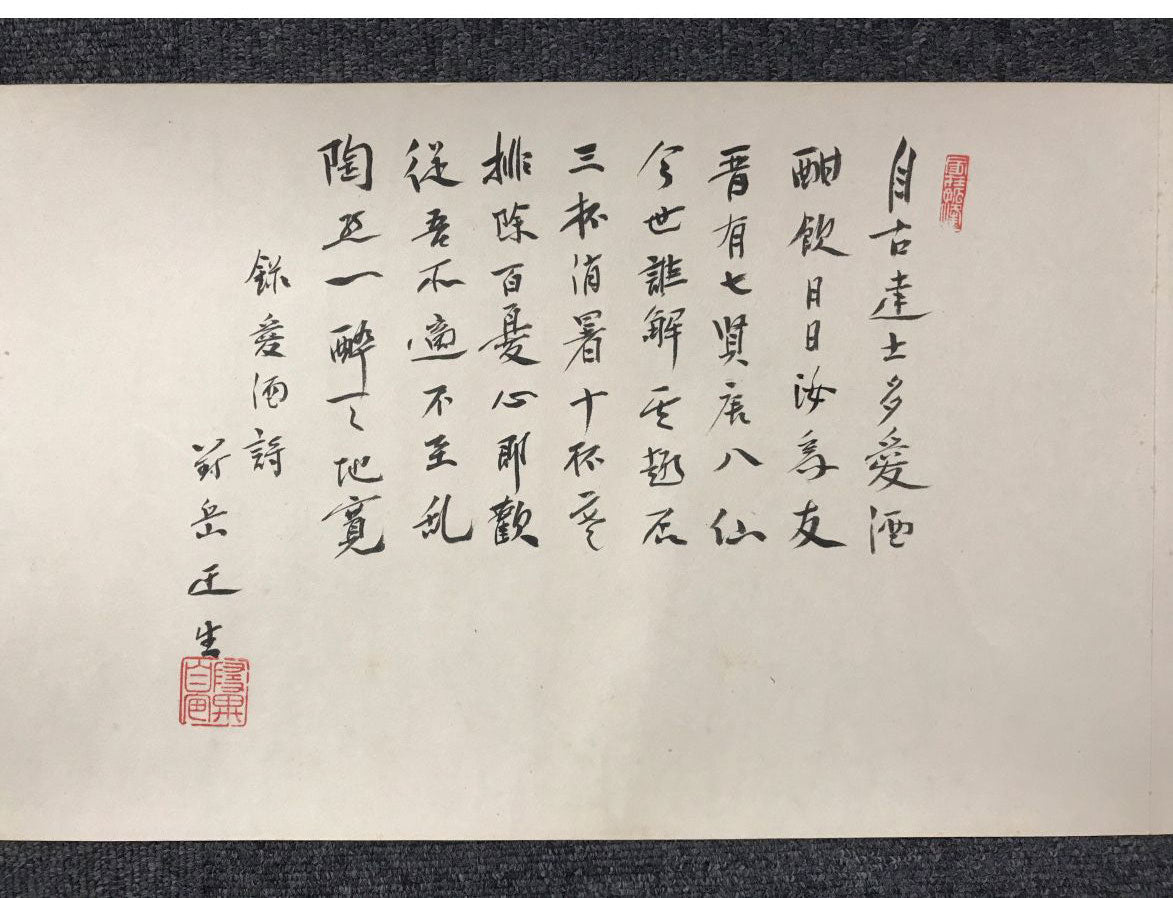 自古達士多愛酒
酣飲月日汝為友
晋有七賢唐八仙
今世誰解其趣否
三杯消暑十杯寒
排除百憂心即歡
従吾所適不至乱
陶然一酔天地寛
録愛酒詩
對岳迂生